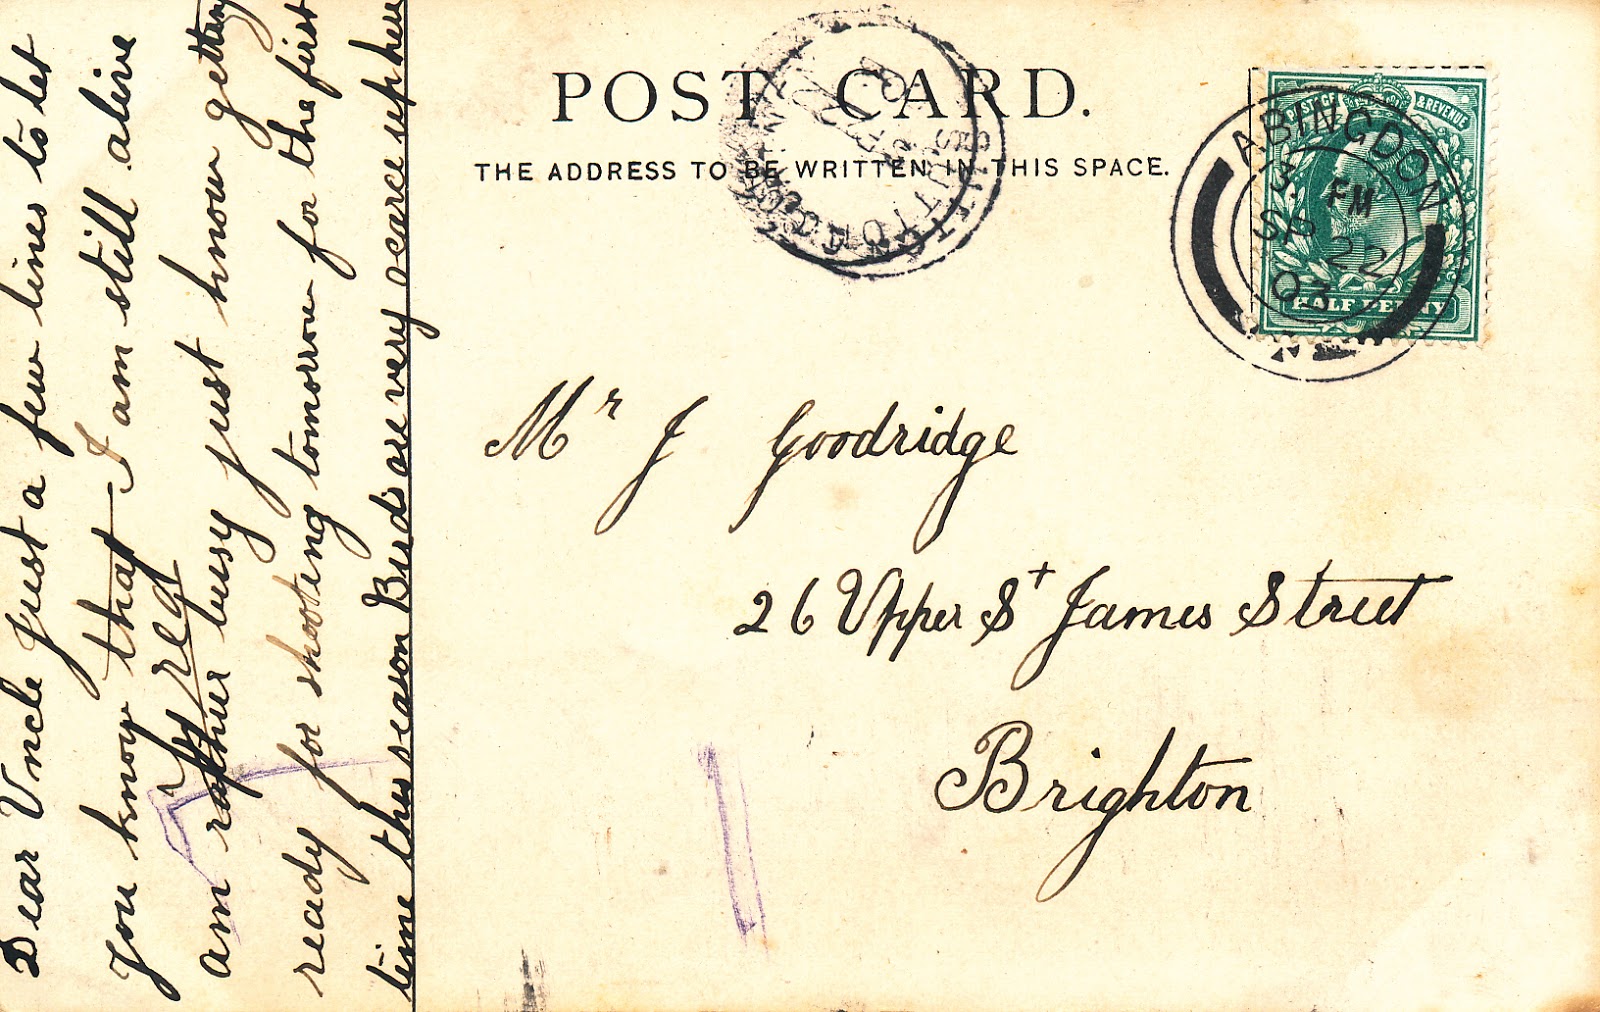 POST CARD.
THE ADDRESS TO BE WRITTEN IN THIS SPACE.
POSTAGE & REVENUE
HALF PENNY
ABINGDON
3. PM
SP 22
03
SUTTON COURTENAY
Mr J Goodridge
26 Upper St James Street
Brighton
Dear Uncle Just a few lines to let
you know that I am still alive
am rather busy just know getting
ready for shooting tomorrow for the first
time this season Birds are very scarce up here
Fred